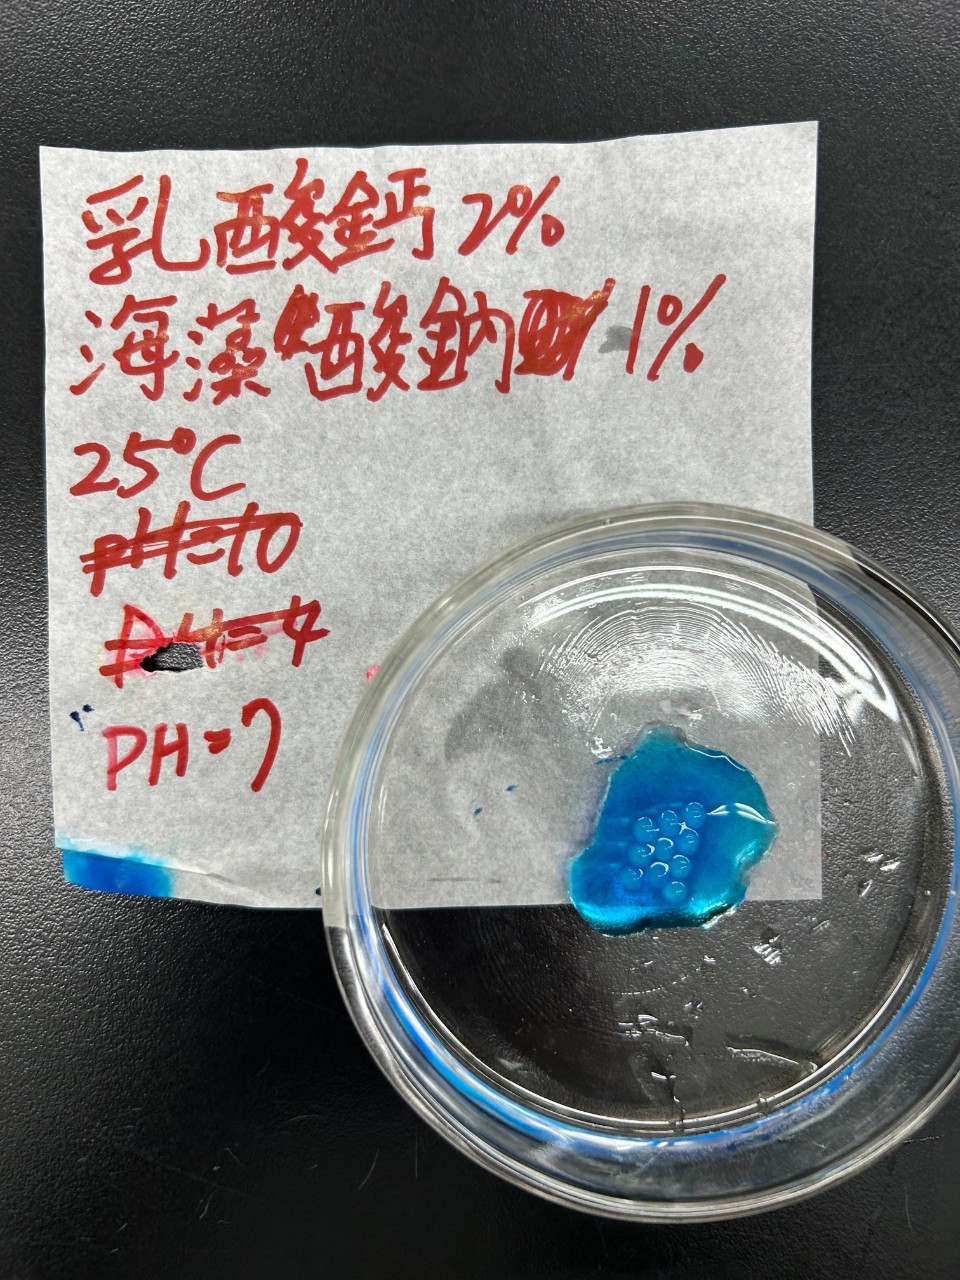 乳酸鈣 2%
海藻酸鈉 1%
25°C
pH=10
PH=4
PH=7